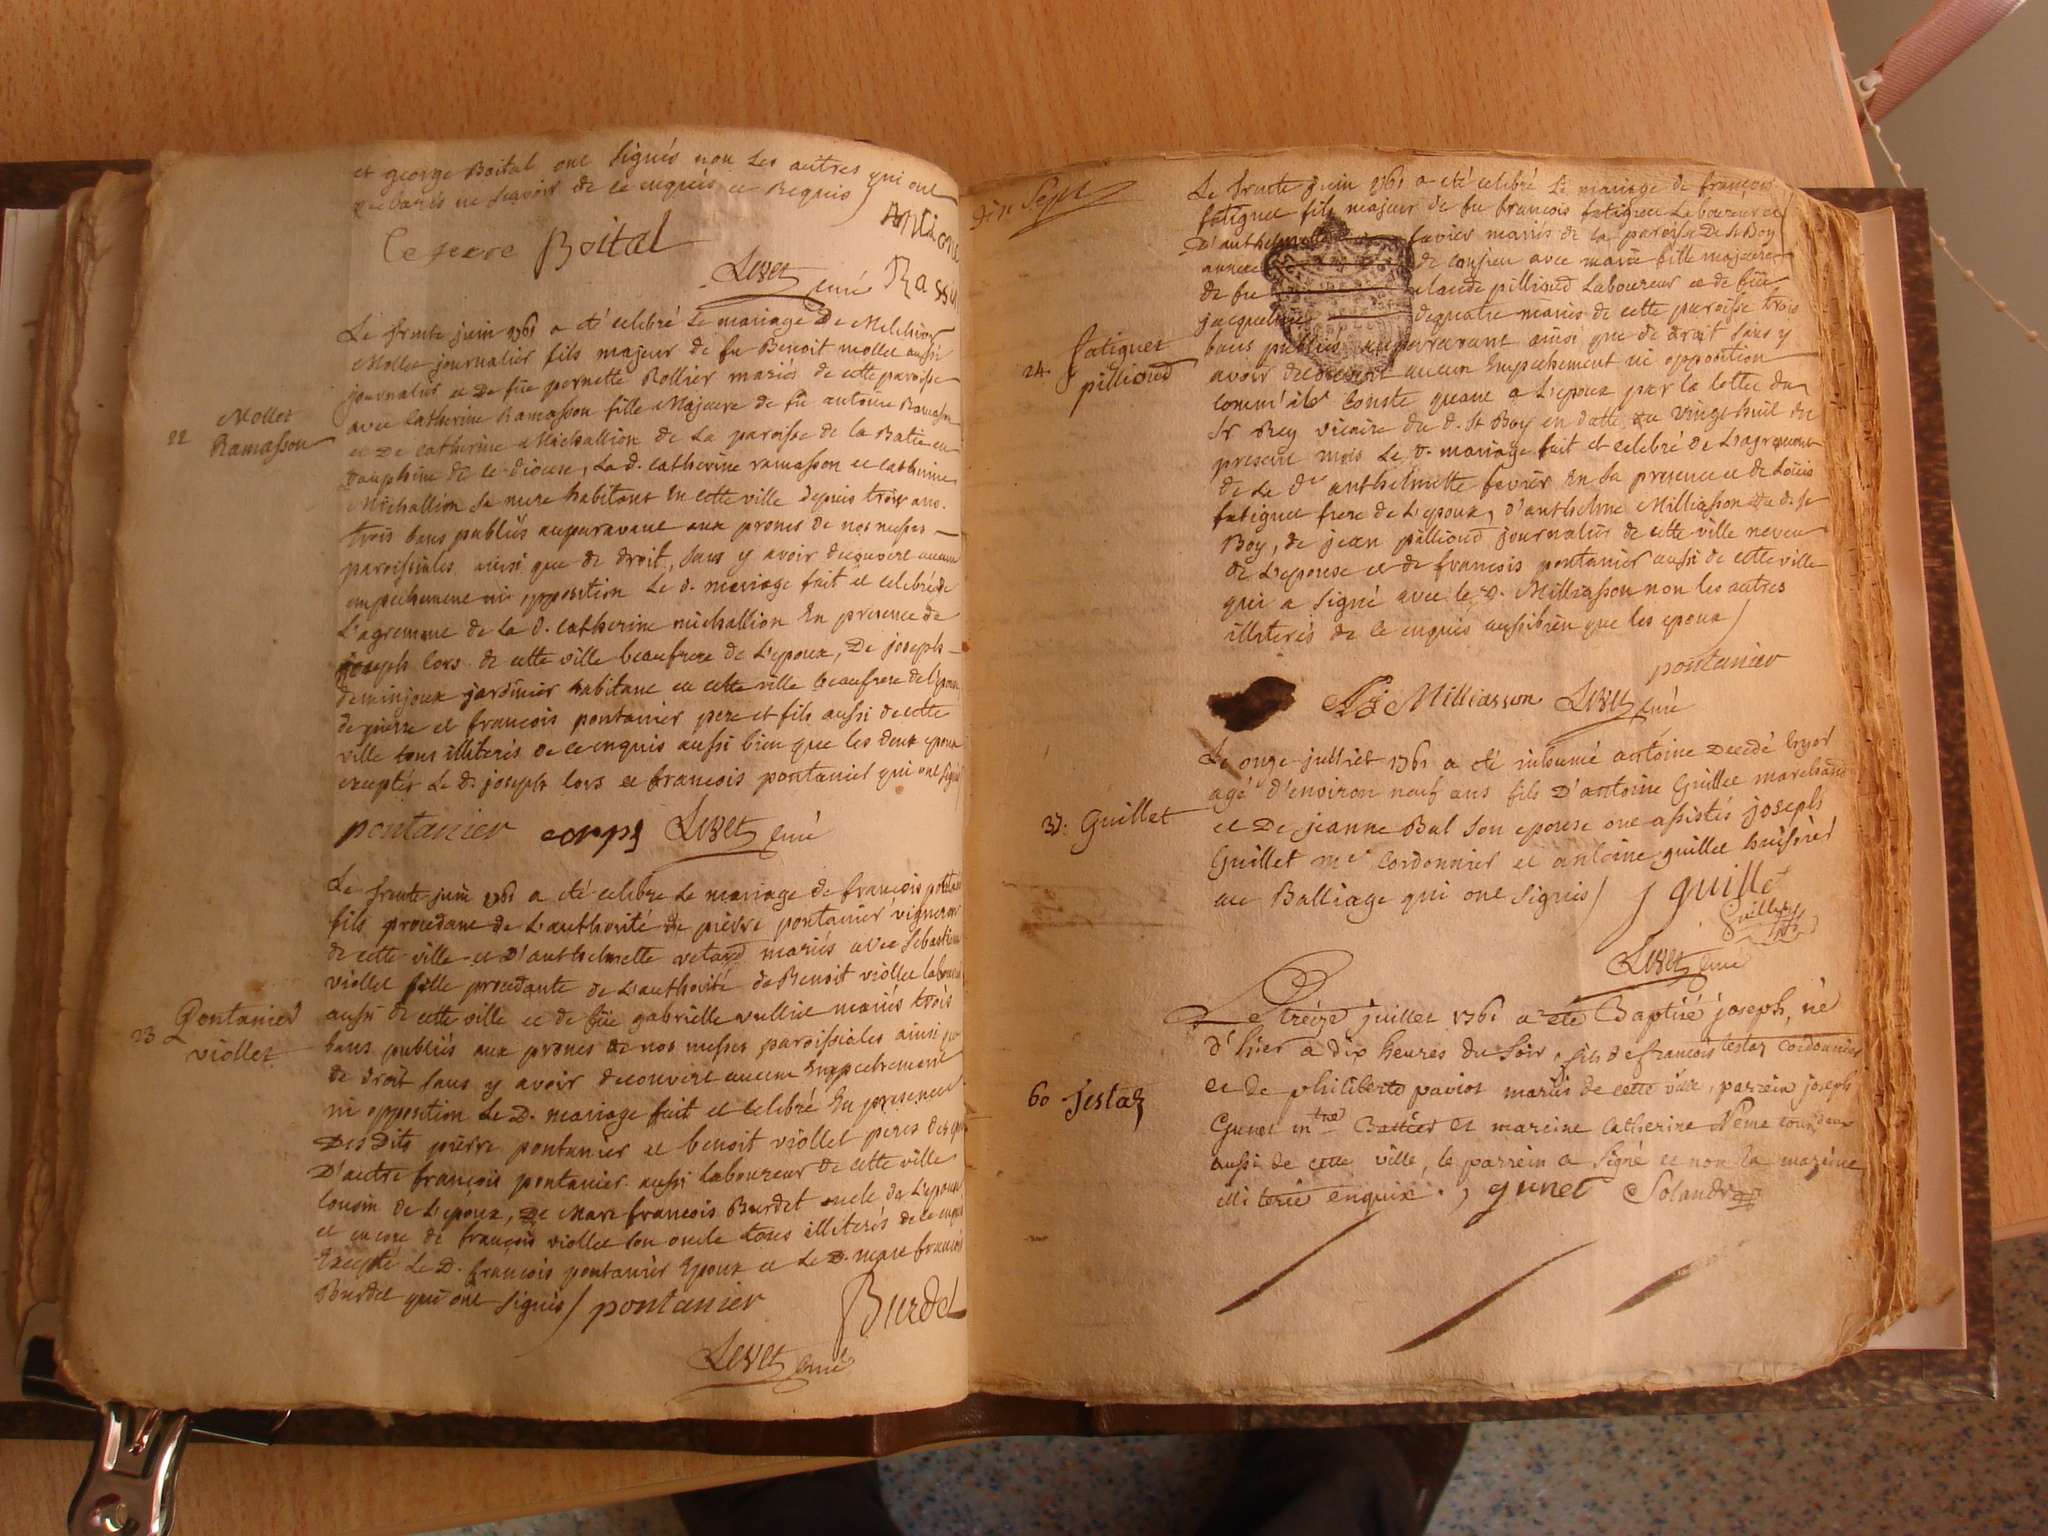 et george Boital ont signés non les autres qui ont
declarés ne scavoir de ce enquis et Requis /
Antoine
le pere Boital
Levet curé Rassy
Le trente juin 1761 a eté celebré Le mariage De Melchior
Mollet journalier fils majeur de fu Benoit mollet aussi
journalier et De füe pernette Rollier mariés de cette paroisse
avec Catherine Ramasson fille Majeure de fû antoine Ramasson
et De catherine Michallion de La paroisse de la Batie en
22 Mollet
Ramasson
Dauphiné de ce diocese, La d. catherine ramasson et catherine
Michallion sa mere habitant En cette ville depuis trois ans.
trois bans publiés auparavant aux prones de nos messes
paroissiales ainsi que de droit, sans y avoir decouvert aucun
empechement ni opposition Le d. mariage fait et celebré de
L'agrement de la d. catherine michallion En presence de
joseph lors de cette ville beaufrere de L'epoux, De joseph
deminjoux jardinier habitant en cette ville beaufrere de l'epoux
de pierre et françois pontanier pere et fils aussi de cette
ville tous illiterés de ce enquis aussi bien que les deux epoux
exceptés Le d. joseph lors et francois pontanier qui ont signé
pontanier corps Levet curé
Le trente juin 1761 a eté celebre Le mariage de françois pontanier
fils procedant de L'authorité de pierre pontanier vigneron
de cette ville et D'anthelmette vetard mariés avec Sebastienne
viollet fille procedante de L'authorité de Benoit viollet laboureur
aussi de cette ville et de füe gabrielle vullin mariés trois
23 Pontanier
viollet
bans publiés aux prones de nos messes paroissiales ainsi que
de droit sans y avoir decouvert aucun Empechement
ni opposition Le D. mariage fait et celebré En presence
Des Dits pierre pontanier et benoit viollet peres des
D'autre françois pontanier aussi laboureur de cette ville
cousin de L'epoux, De Marc françois Burdet oncle de L'epoux
et encore de françois viollet son oncle tous illiterés de ce enquis
Excepté Le D. françois pontanier Epoux et Le D. marc francois
Burdet qui ont signés / pontanier Burdet
Levet curé
dix sept
Le trente juin 1761 a eté celebré Le mariage de françois
fatiguet fils majeur de fu françois fatiguet Laboureur et
D'anthelmette favier mariés de la paroisse De St Boy
annexe de conzieu avec marie fille majeure
de fu claude pillioud Laboureur et de füe
jacqueline dequatre mariés de cette paroisse trois
24. fatiguet
pillioud
bans publiés auparavant ainsi que de droit sans y
avoir decouvert aucun Empechement ni opposition
comm'ile Conste quant a L'epoux par la lettre du
Sr Rey vicaire du d. St Boy en datte du vingt huit du
present mois Le d. mariage fait et celebré de L'agrement
de La de anthelmette favier En sa presence et de Loüis
fatiguet frere de L'epoux, d'anthelme Milliasson du d. St
Boy, de jean pillioud journalier de cette ville neveu
de L'epouse et de francois pontanier aussi de cette ville
qui a signé avec le D. Milliasson non les autres
illiterés de ce enquis aussi bien que les epoux /
pontanier
Milliasson Levet curé
Le onze julliet 1761 a eté inhumé antoine Decedé hyer
agé d'environ neuf ans fils D'antoine Guillet marchand
37. Guillet
et De jeanne Bal son epouse ont assistés joseph
Guillet me Cordonnier et antoine guillet huissier
au Balliage qui ont signés / j guillet
Guillet
Levet curé
Le treize juillet 1761 a eté Baptisé joseph, né
d'hier a dix heures du soir, fils de francois testaz cordonnier
60 Testaz
et de philiberte paviot mariés de cette ville, parrein joseph
Gunet mtre Batier et mareine Catherine Neme tous deux
aussi de cette ville, le parrein a signé et non la mareine
illiterée enquise., gunet Solandre